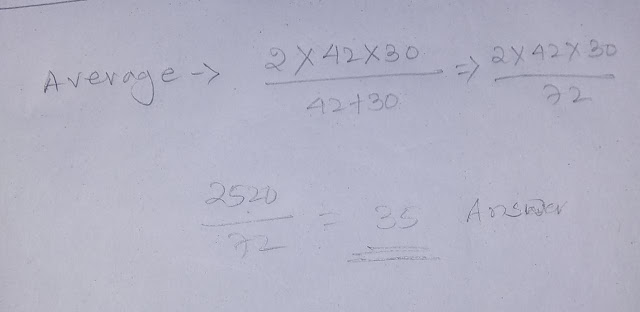 Average -> 2X42X30 / 42+30 => 2X42X30 / 72
2520 / 72 = 35 Answer